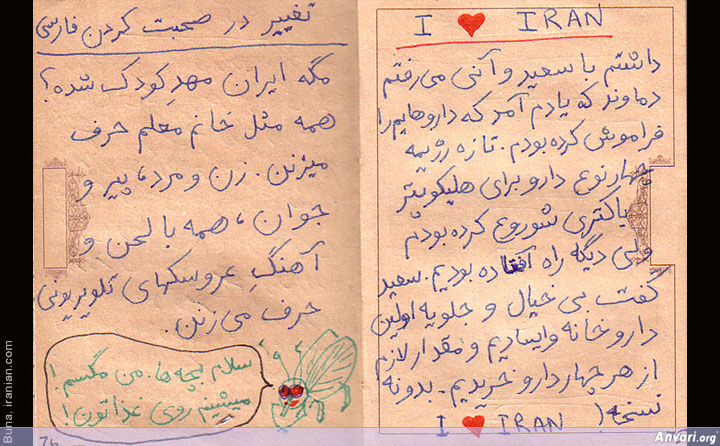 I ❤ IRAN
داشتم با سعید و آتی می رفتم
دماوند که یادم آمد که داروهایم را
فراموش کرده بودم. تازه رژیمه
چهار نوع دارو برای هلیکوپتر
باکتری شوروع کرده بودم
ولی دیگه راه افتاده بودیم. سعید
گفت بی خیال و جلویه اولین
داروخانه وایسادیم و مقدار لازم
از هر چهار دارو خریدیم. بدونه
نسخه!
I ❤ IRAN
تغییر در صحبت کردن فارسی
مگه ایران مهدِ کودک شده؟
همه مثل خانم معلم حرف
میزنن. زن و مرد، پیر و
جوان، همه با لحن و
آهنگِ عروسکهای تلویزیونی
حرف می زنن.
سلام بچه ها. من مگسم!
میشینم روی غذاتون!
Buna. iranian.com
Anvari.org